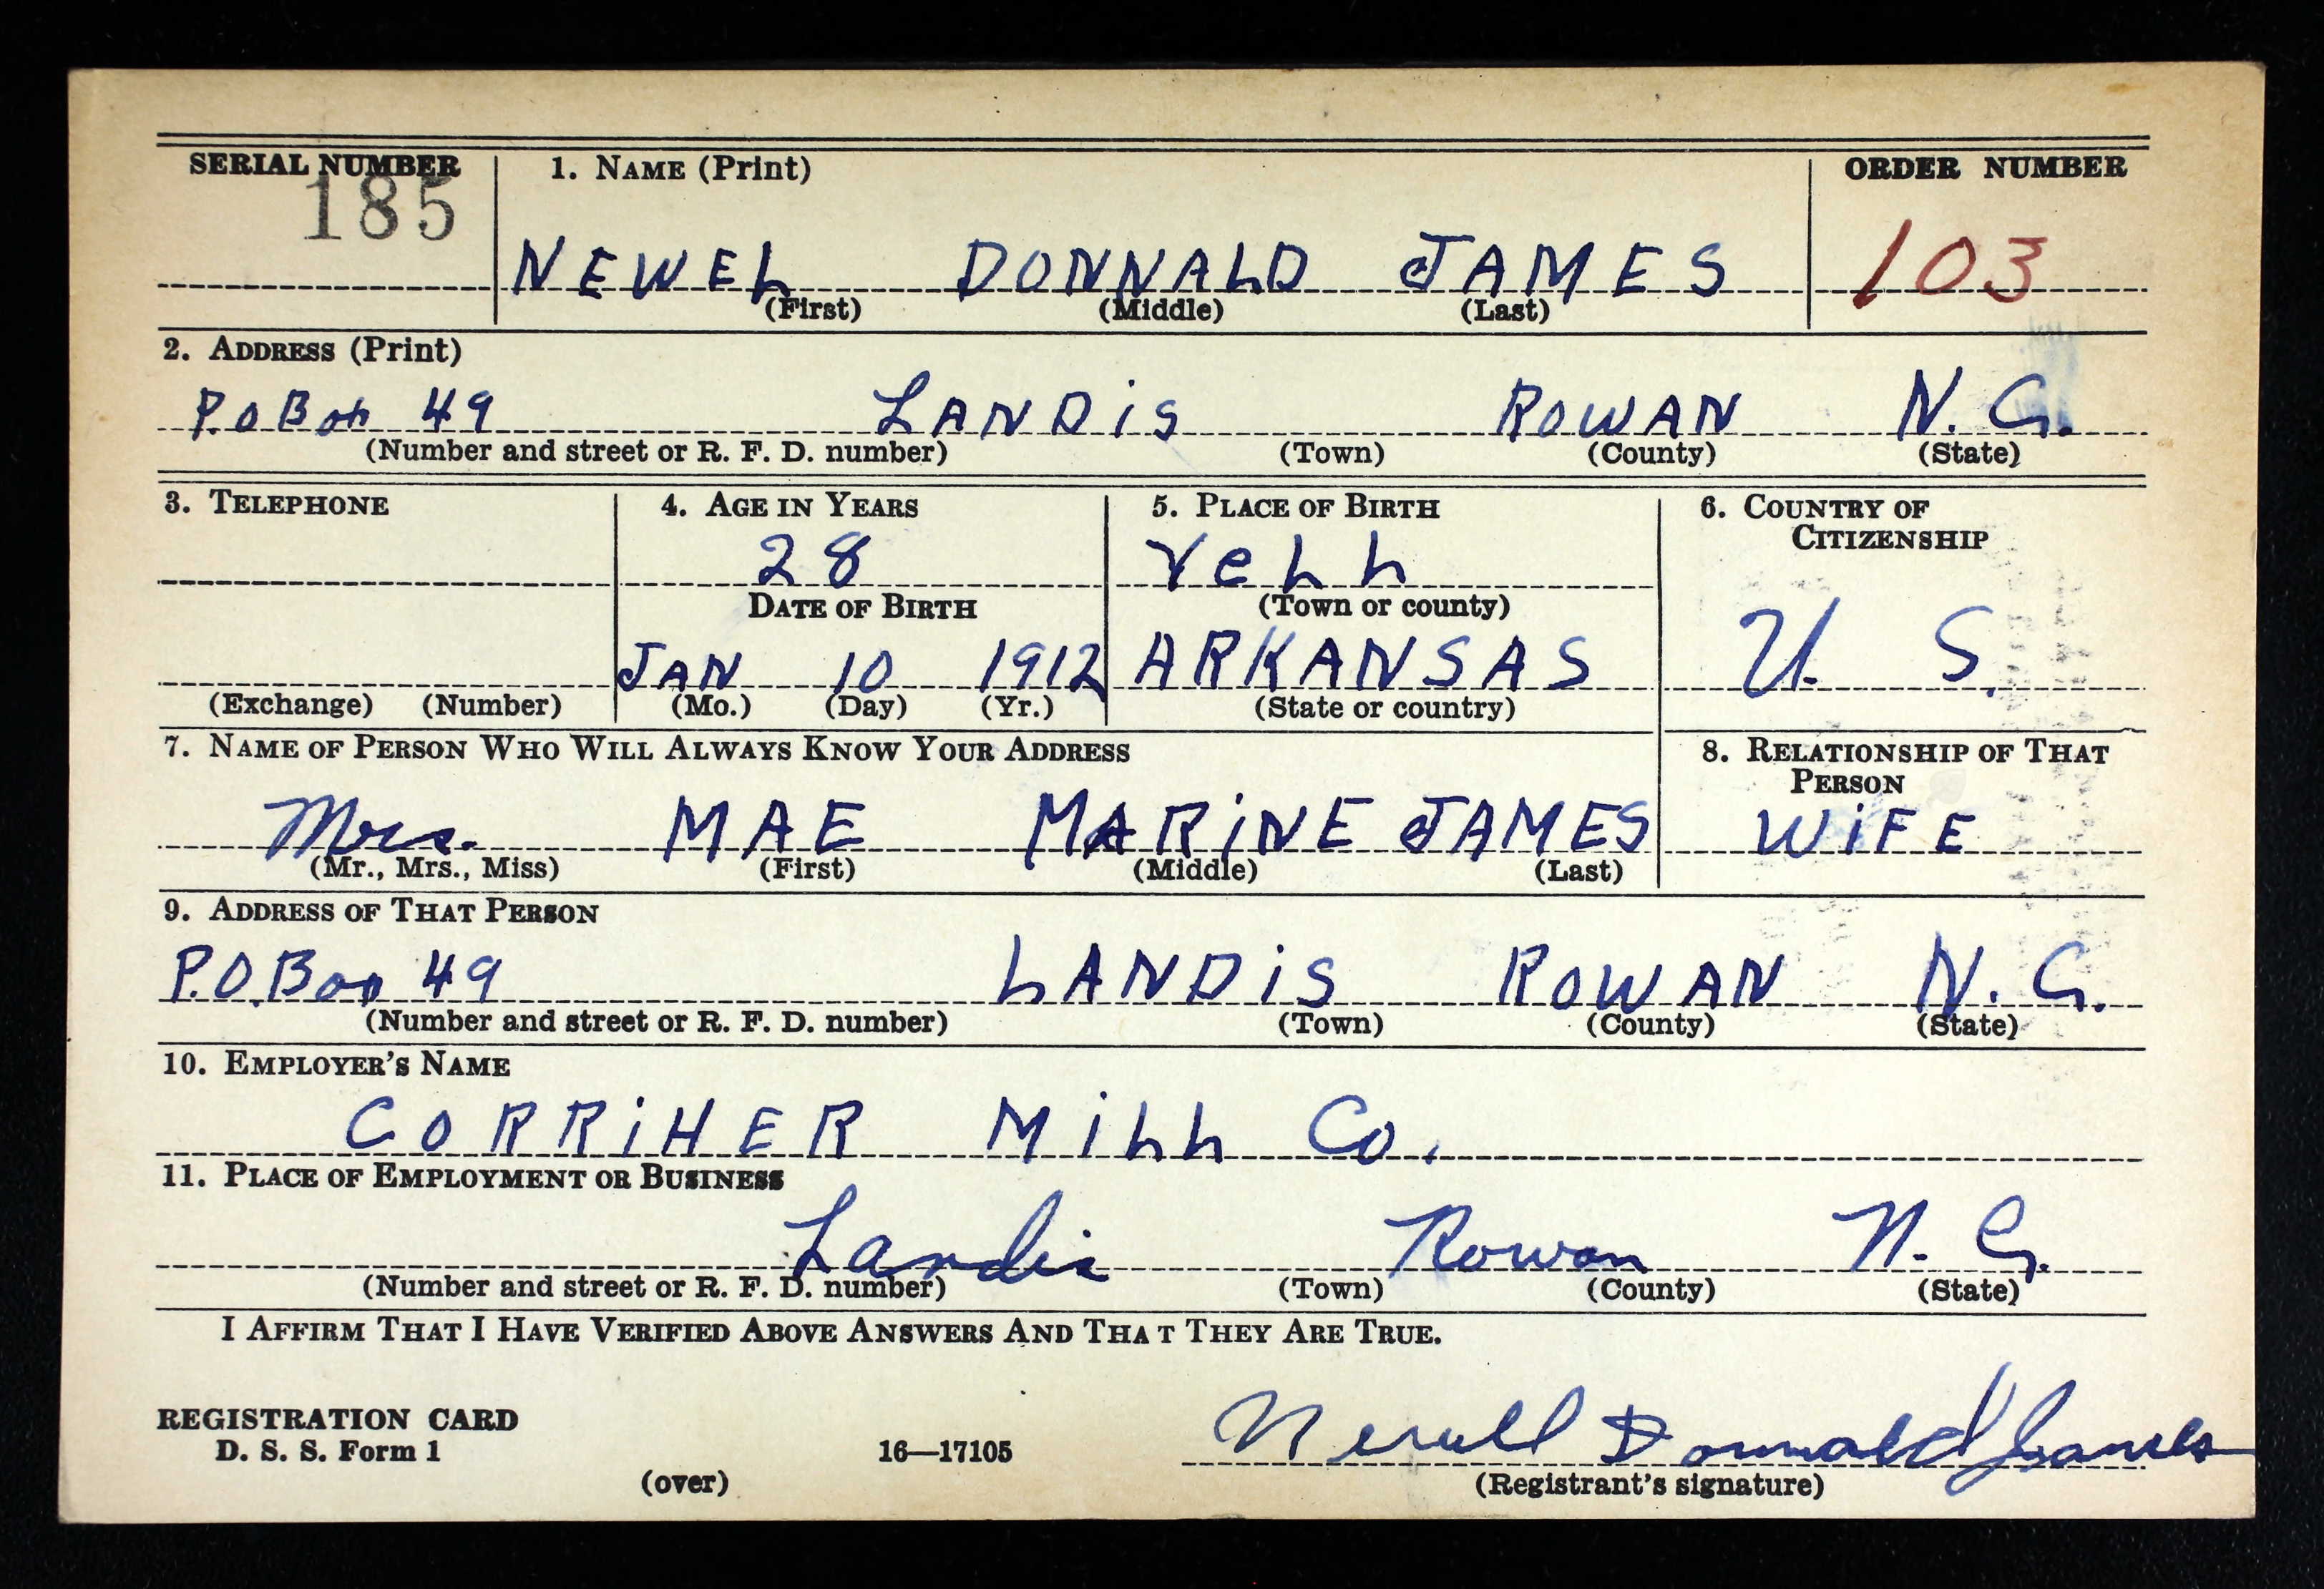 SERIAL NUMBER 1. NAME (Print) ORDER NUMBER
185
NEWEL DONNALD JAMES 103
(First) (Middle) (Last)
2. ADDRESS (Print)
P.O Box 49 LANDiS ROWAN N.C.
(Number and street or R. F. D. number) (Town) (County) (State)
3. TELEPHONE 4. AGE IN YEARS 5. PLACE OF BIRTH 6. COUNTRY OF CITIZENSHIP
28 YeLL
DATE OF BIRTH (Town or county)
JAN 10 1912 ARKANSAS U. S.
(Exchange) (Number) (Mo.) (Day) (Yr.) (State or country)
7. NAME OF PERSON WHO WILL ALWAYS KNOW YOUR ADDRESS 8. RELATIONSHIP OF THAT PERSON
Mrs. MAE MARiNE JAMES WiFE
(Mr., Mrs., Miss) (First) (Middle) (Last)
9. ADDRESS OF THAT PERSON
P.O. Box 49 LANDiS ROWAN N.C.
(Number and street or R. F. D. number) (Town) (County) (State)
10. EMPLOYER'S NAME
CORRiHER MiLL Co.
11. PLACE OF EMPLOYMENT OR BUSINESS
Landis Rowan N. C.
(Number and street or R. F. D. number) (Town) (County) (State)
I AFFIRM THAT I HAVE VERIFIED ABOVE ANSWERS AND THAT THEY ARE TRUE.
REGISTRATION CARD
D. S. S. Form 1 16—17105 Newell Donnald James
(over) (Registrant's signature)